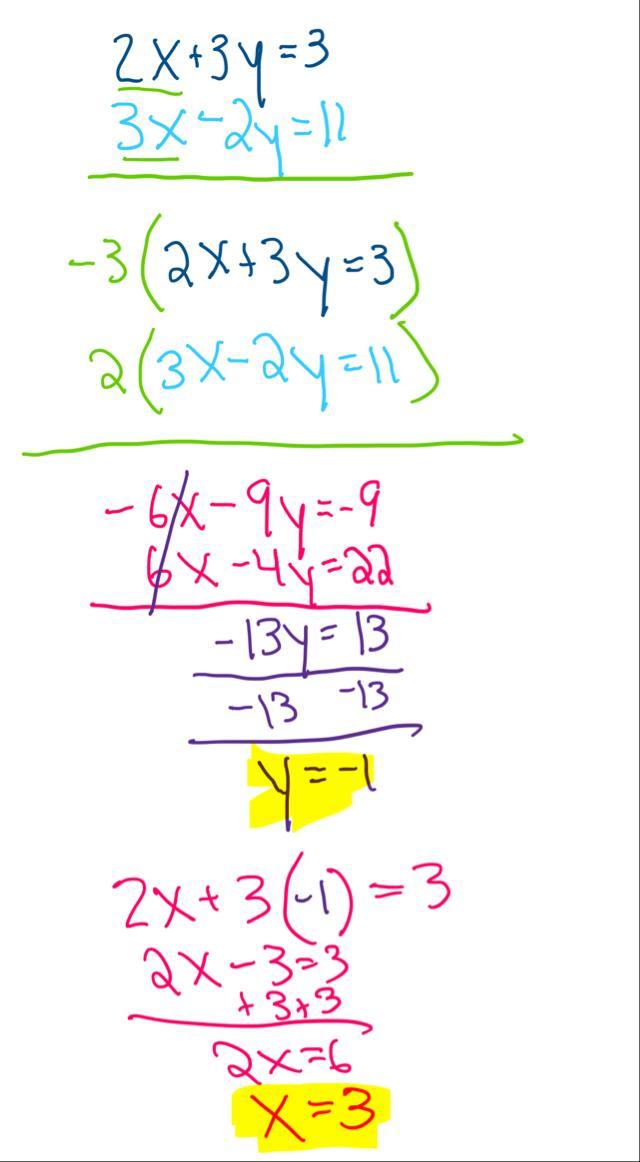 2x+3y=3
3x-2y=11
-3(2x+3y=3)
2(3x-2y=11)
-6x-9y=-9
6x-4y=22
-13y=13
-13 -13
y=-1
2x+3(-1)=3
2x-3=3
+3+3
2x=6
x=3